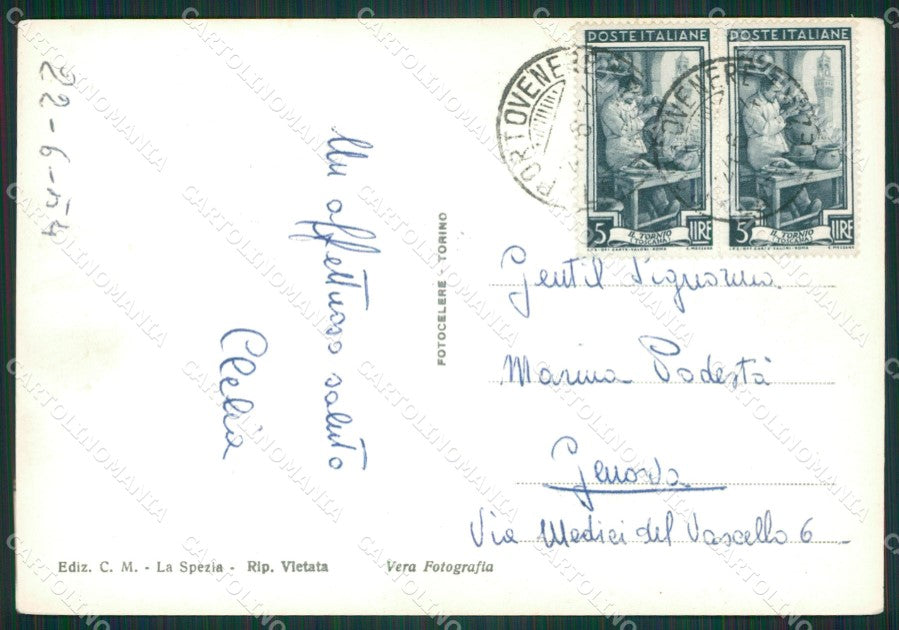 22-6-54
Un affettuoso saluto
Clelia
FOTOCELERE - TORINO
PORTOVENERE
PORTOVENERE
POSTE ITALIANE
5 LIRE
IL TORNIO
(TOSCANA)
POSTE ITALIANE
5 LIRE
IL TORNIO
(TOSCANA)
Gentil Signorina
Marina Podestà
Genova
Via Medici del Vascello 6
Ediz. C. M. - La Spezia - Rip. Vietata
Vera Fotografia
CARTOLINOMANIA